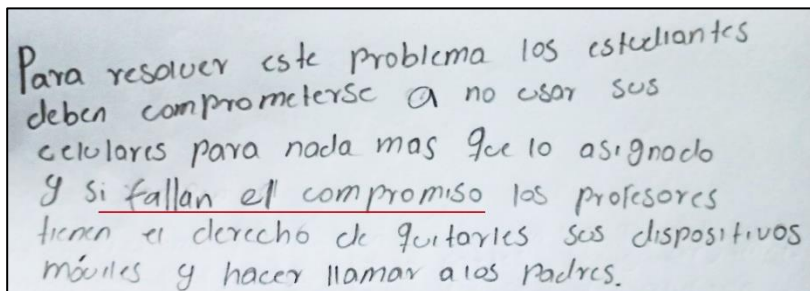 Para resolver este problema los estudiantes
deben comprometerse a no usar sus
celulares para nada mas que lo asignado
y si fallan el compromiso los profesores
tienen el derecho de quitarles sus dispositivos
móviles y hacer llamar a los padres.